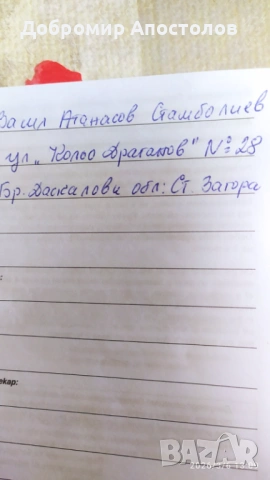 Добромир Апостолов
Васил Атанасов Стамболиев
ул „Колоо Драганов" № 28
Бр. Даскалови обл: Ст. Загора
лекар:
BAZAR